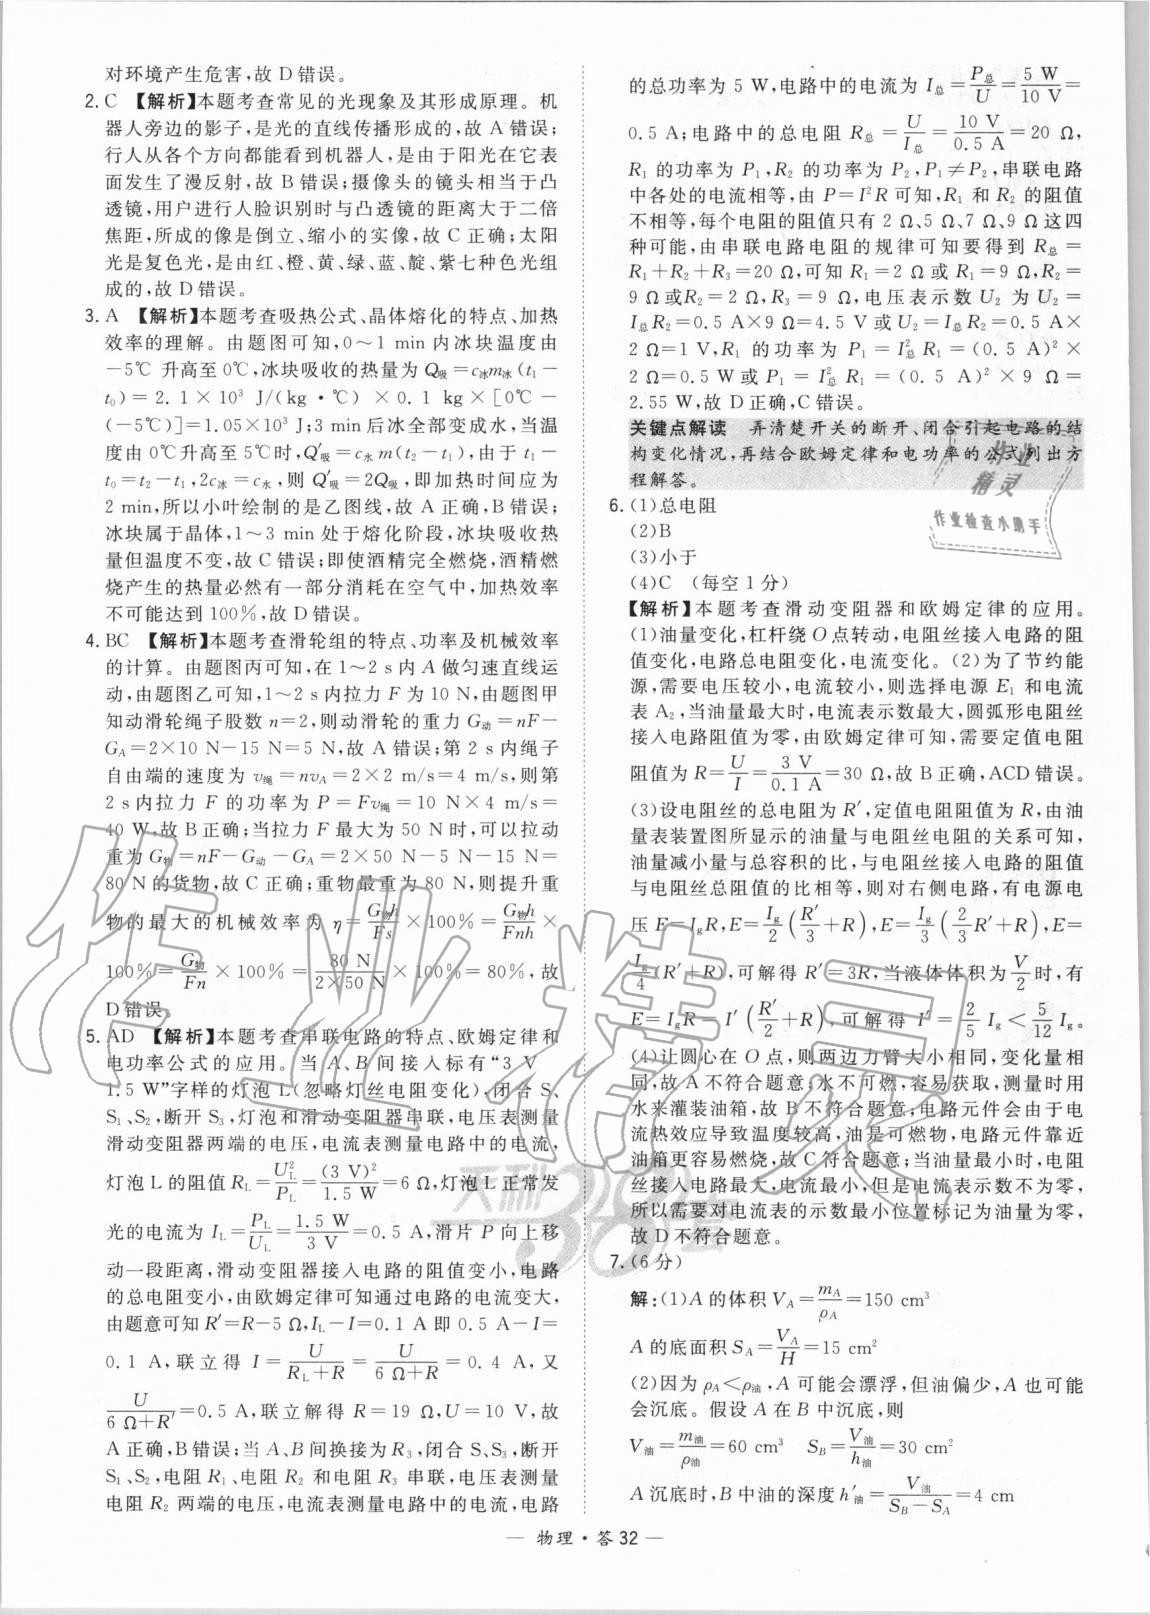 对环境产生危害,故 D 错误。
2. C 【解析】本题考查常见的光现象及其形成原理。机
器人旁边的影子,是光的直线传播形成的,故 A 错误;
行人从各个方向都能看到机器人,是由于阳光在它表
面发生了漫反射,故 B 错误;摄像头的镜头相当于凸
透镜,用户进行人脸识别时与凸透镜的距离大于二倍
焦距,所成的像是倒立、缩小的实像,故 C 正确;太阳
光是复色光,是由红、橙、黄、绿、蓝、靛、紫七种色光组
成的,故 D 错误。
3. A 【解析】本题考查吸热公式、晶体熔化的特点、加热
效率的理解。由题图可知,0～1 min 内冰块温度由
－5℃ 升高至 0℃,冰块吸收的热量为 Q吸=c冰m冰(t₁－
t₀)=2.1×10³ J/(kg·℃)×0.1 kg×[0℃－
(－5℃)]=1.05×10³ J;3 min 后冰全部变成水,当温
度由 0℃升高至 5℃时,Q′吸=c水m(t₂－t₁),由于 t₁－
t₀=t₂－t₁,2c冰=c水,则 Q′吸=2Q吸,即加热时间应为
2 min,所以小叶绘制的是乙图线,故 A 正确,B 错误;
冰块属于晶体,1～3 min 处于熔化阶段,冰块吸收热
量但温度不变,故 C 错误;即使酒精完全燃烧,酒精燃
烧产生的热量必然有一部分消耗在空气中,加热效率
不可能达到 100%,故 D 错误。
4. BC 【解析】本题考查滑轮组的特点、功率及机械效率
的计算。由题图丙可知,在 1～2 s 内 A 做匀速直线运
动,由题图乙可知,1～2 s 内拉力 F 为 10 N,由题图甲
知动滑轮绳子股数 n=2,则动滑轮的重力 G动=nF－
G_A=2×10 N－15 N=5 N,故 A 错误;第 2 s 内绳子
自由端的速度为 v绳=nv_A=2×2 m/s=4 m/s,则第
2 s 内拉力 F 的功率为 P=Fv绳=10 N×4 m/s=
40 W,故 B 正确;当拉力 F 最大为 50 N 时,可以拉动
重为 G物=nF－G动－G_A=2×50 N－5 N－15 N=
80 N 的货物,故 C 正确;重物最重为 80 N,则提升重
物的最大的机械效率为 η=G物h/Fs×100%=G物h/Fnh×
100%=G物/Fn×100%=80 N/(2×50 N)×100%=80%,故
D 错误
5. AD 【解析】本题考查串联电路的特点、欧姆定律和
电功率公式的应用。当 A、B 间接入标有“3 V
1.5 W”字样的灯泡 L(忽略灯丝电阻变化),闭合 S、
S₁、S₂,断开 S₃,灯泡和滑动变阻器串联,电压表测量
滑动变阻器两端的电压,电流表测量电路中的电流,
灯泡 L 的阻值 R_L=U_L²/P_L=(3 V)²/1.5 W=6 Ω,灯泡 L 正常发
光的电流为 I_L=P_L/U_L=1.5 W/3 V=0.5 A,滑片 P 向上移
动一段距离,滑动变阻器接入电路的阻值变小,电路
的总电阻变小,由欧姆定律可知通过电路的电流变大,
由题意可知 R′=R－5 Ω,I_L－I=0.1 A 即 0.5 A－I=
0.1 A,联立得 I=U/(R_L+R)=U/(6 Ω+R)=0.4 A,又
U/(6 Ω+R′)=0.5 A,联立解得 R=19 Ω,U=10 V,故
A 正确,B 错误;当 A、B 间换接为 R₃,闭合 S、S₃,断开
S₁、S₂,电阻 R₁、电阻 R₂ 和电阻 R₃ 串联,电压表测量
电阻 R₂ 两端的电压,电流表测量电路中的电流,电路
的总功率为 5 W,电路中的电流为 I总=P总/U=5 W/10 V=
0.5 A;电路中的总电阻 R总=U/I总=10 V/0.5 A=20 Ω,
R₁ 的功率为 P₁,R₂ 的功率为 P₂,P₁≠P₂,串联电路
中各处的电流相等,由 P=I²R 可知,R₁ 和 R₂ 的阻值
不相等,每个电阻的阻值只有 2 Ω、5 Ω、7 Ω、9 Ω 这四
种可能,由串联电路电阻的规律可知要得到 R总=
R₁+R₂+R₃=20 Ω,可知 R₁=2 Ω 或 R₁=9 Ω,R₂=
9 Ω或R₂=2 Ω,R₃=9 Ω,电压表示数 U₂ 为 U₂=
I总R₂=0.5 A×9 Ω=4.5 V 或 U₂=I总R₂=0.5 A×
2 Ω=1 V,R₁ 的功率为 P₁=I总²R₁=(0.5 A)²×
2 Ω=0.5 W 或 P₁=I总²R₁=(0.5 A)²×9 Ω=
2.55 W,故 D 正确,C 错误。
关键点解读 弄清楚开关的断开、闭合引起电路的结
构变化情况,再结合欧姆定律和电功率的公式列出方
程解答。
6. (1)总电阻
(2)B
(3)小于
(4)C (每空 1 分)
【解析】本题考查滑动变阻器和欧姆定律的应用。
(1)油量变化,杠杆绕 O 点转动,电阻丝接入电路的阻
值变化,电路总电阻变化,电流变化。(2)为了节约能
源,需要电压较小,电流较小,则选择电源 E₁ 和电流
表 A₂,当油量最大时,电流表示数最大,圆弧形电阻丝
接入电路阻值为零,由欧姆定律可知,需要定值电阻
阻值为 R=U/I=3 V/0.1 A=30 Ω,故 B 正确,ACD 错误。
(3)设电阻丝的总电阻为 R′,定值电阻阻值为 R,由油
量表装置图所显示的油量与电阻丝电阻的关系可知,
油量减小量与总容积的比,与电阻丝接入电路的阻值
与电阻丝总阻值的比相等,则对右侧电路,有电源电
压 E=I_gR,E=I_g/2(R′/3+R),E=I_g/3(2/3R′+R),E=
I_g/4(R′+R),可解得 R′=3R,当液体体积为V/2时,有
E=I_gR=I′(R′/2+R),可解得 I′=2/5 I_g<5/12 I_g。
(4)让圆心在 O 点,则两边力臂大小相同,变化量相
同,故 A 不符合题意;水不可燃,容易获取,测量时用
水来灌装油箱,故 B 不符合题意;电路元件会由于电
流热效应导致温度较高,油是可燃物,电路元件靠近
油箱更容易燃烧,故 C 符合题意;当油量最小时,电阻
丝接入电路最大,电流最小,但是电流表示数不为零,
所以需要对电流表的示数最小位置标记为油量为零,
故 D 不符合题意。
7. (6 分)
解:(1)A 的体积 V_A=m_A/ρ_A=150 cm³
A 的底面积 S_A=V_A/H=15 cm²
(2)因为 ρ_A<ρ油,A 可能会漂浮,但油偏少,A 也可能
会沉底。假设 A 在 B 中沉底,则
V油=m油/ρ油=60 cm³ S_B=V油/h油=30 cm²
A 沉底时,B 中油的深度 h′油=V油/(S_B－S_A)=4 cm
— 物理·答 32 —
作业精灵
天利38套
作业
精灵
作业检查小助手